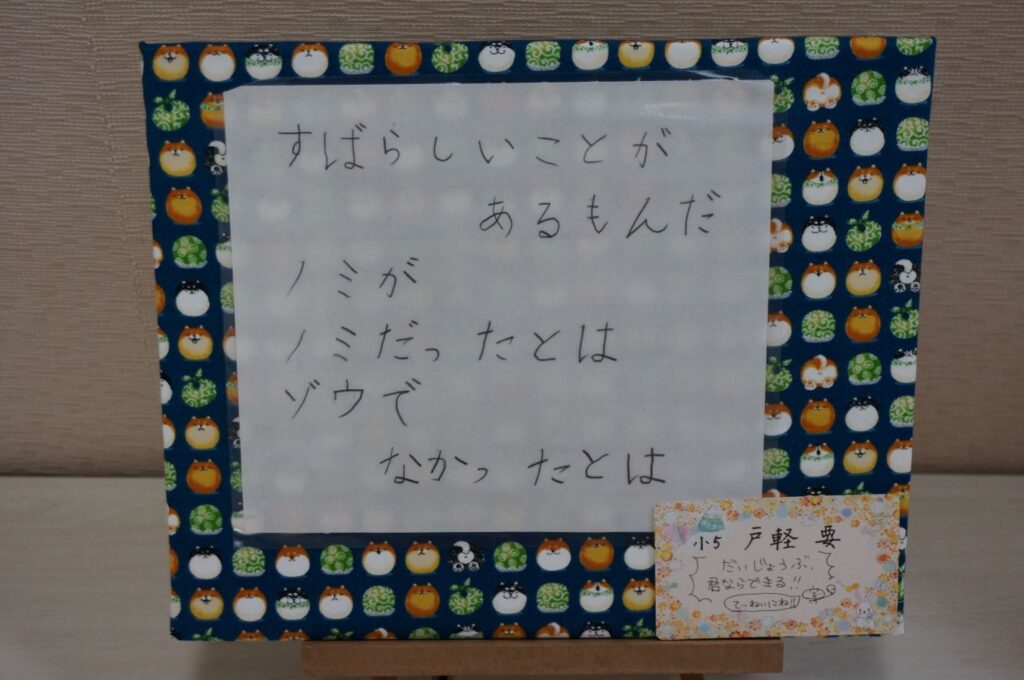 すばらしいことが
あるもんだ
ノミが
ノミだったとは
ゾウで
なかったとは
小5 戸軽 要
だいじょうぶ、
君ならできる!!
ていねいにね!!